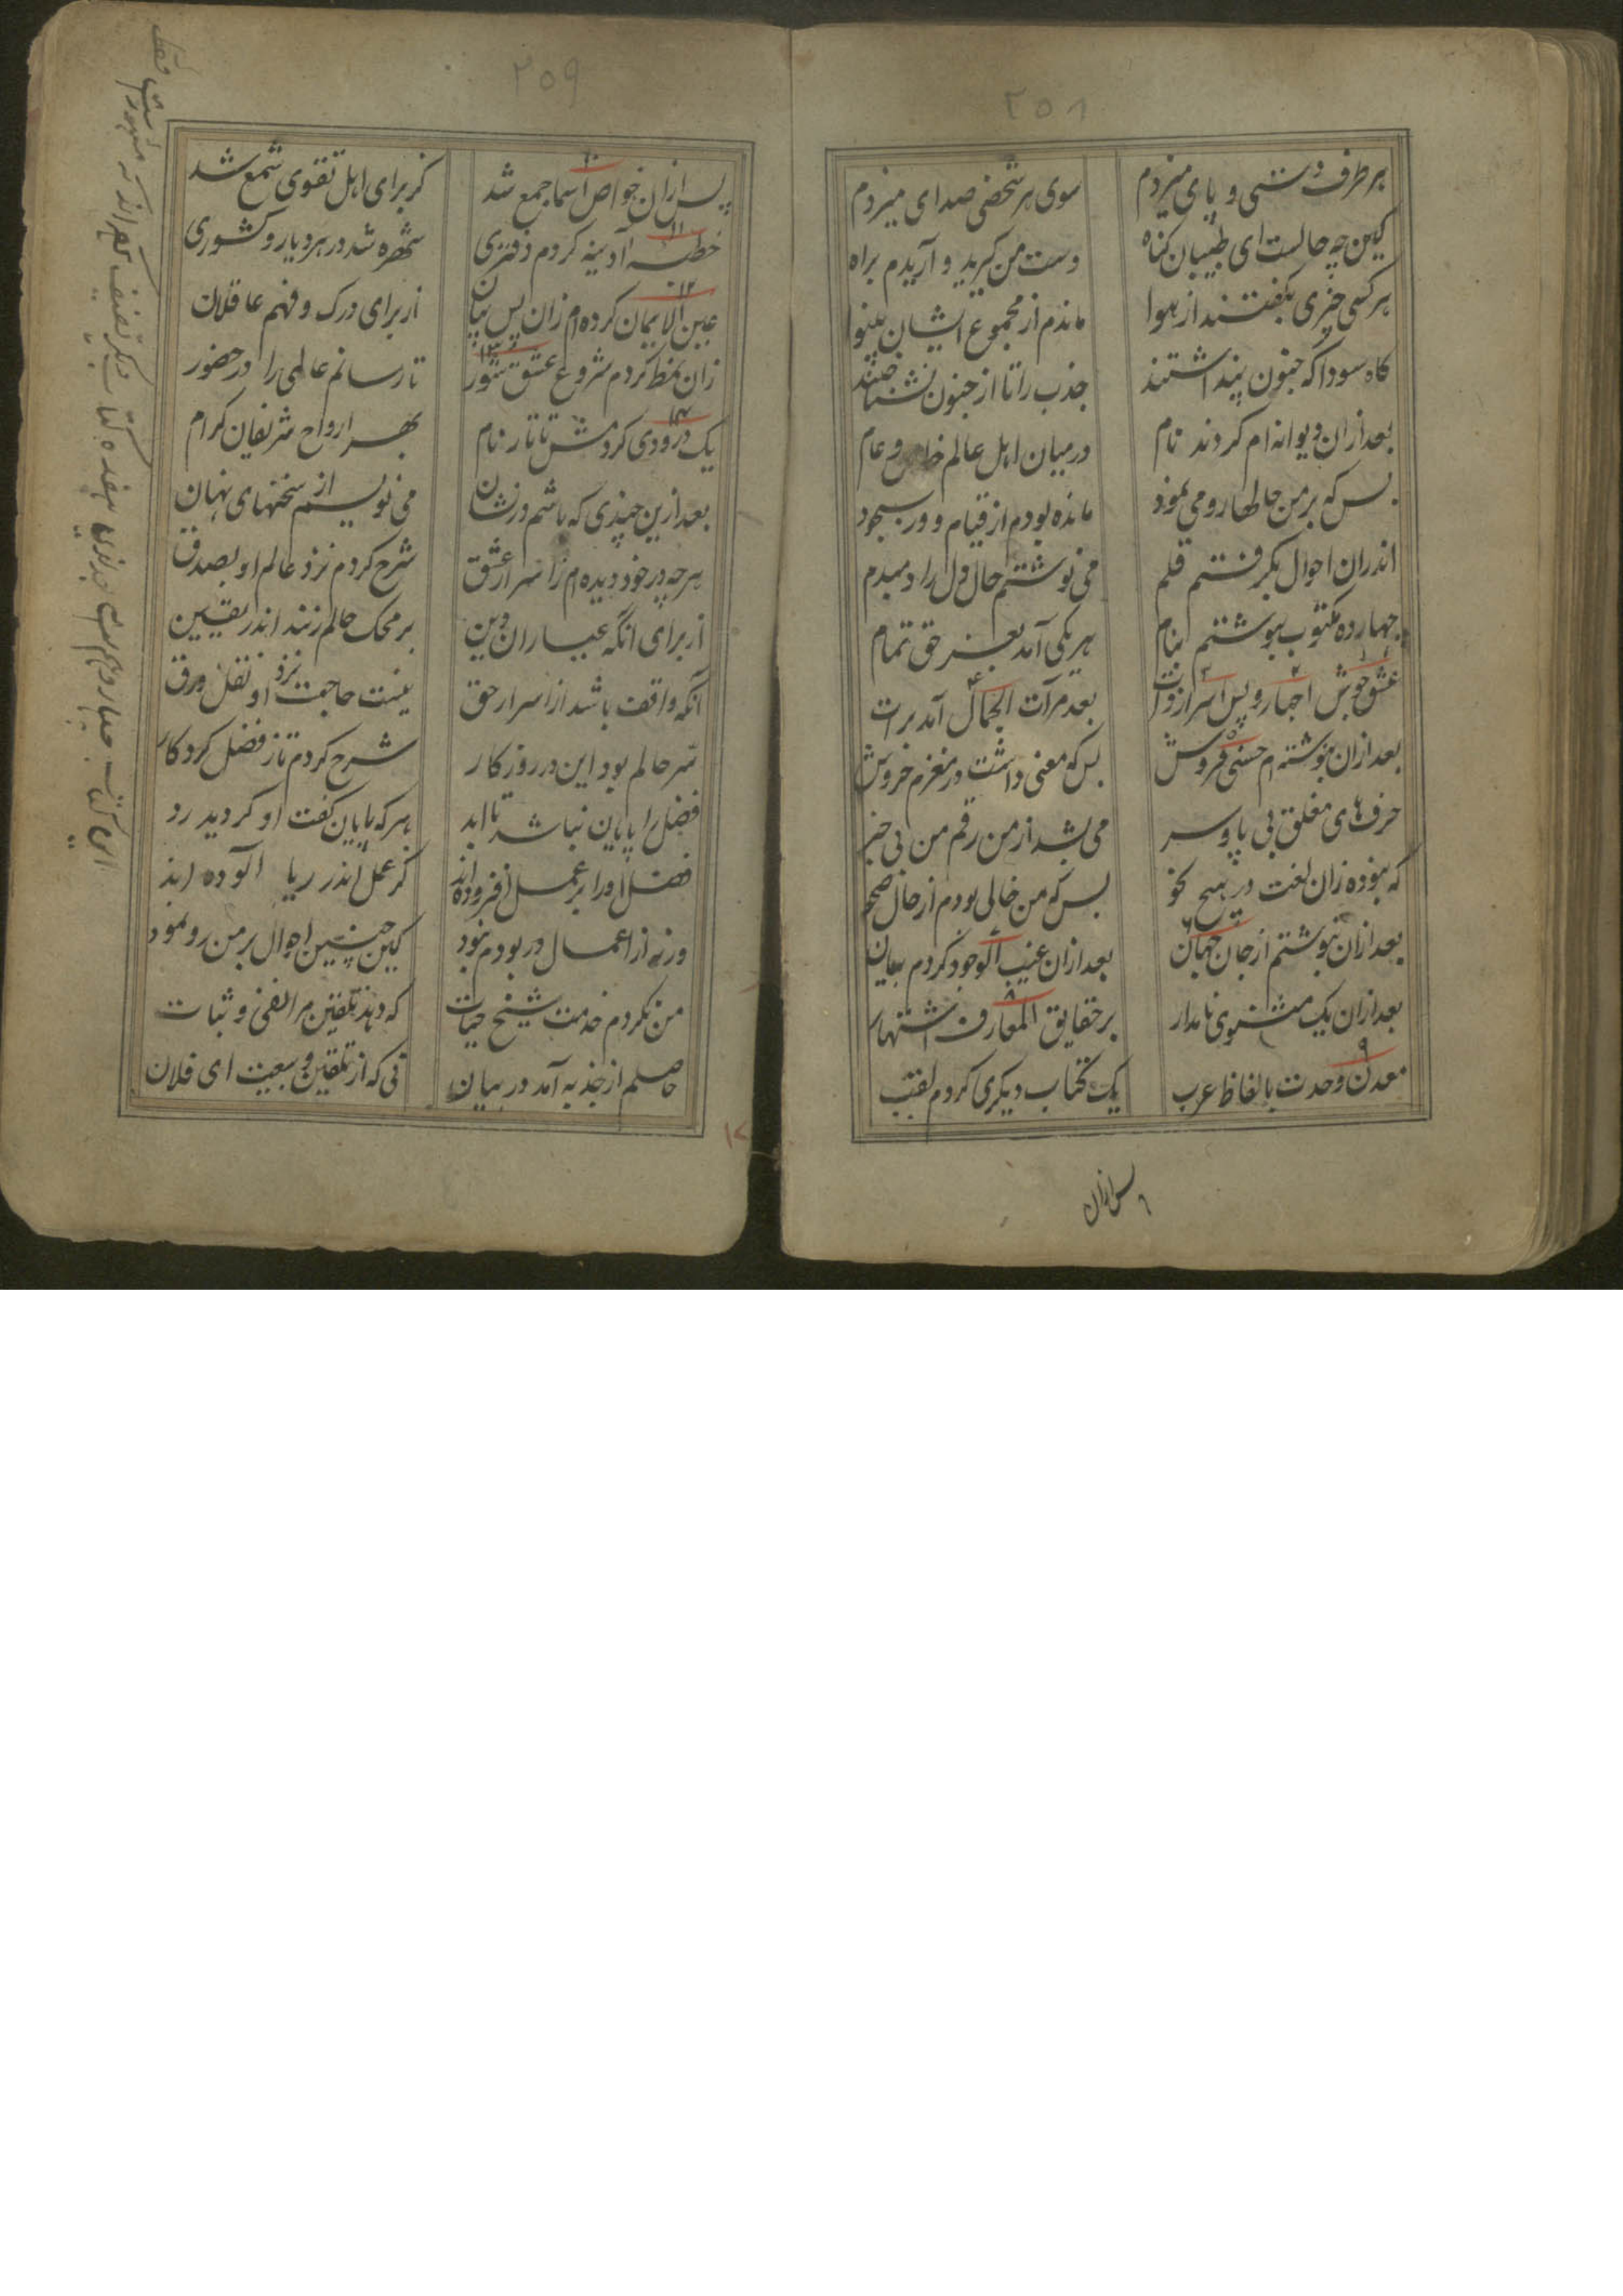 ۲۵۸
بهر طرف دستی و پای میزدم سوی هر شخصی صدای میزدم
کین چه حالست ای طبیبان کناه دست من کیرید و آریدم براه
هر کسی چیزی بکفتند از هوا ماندم از مجموع ایشان بینوا
کاه سودا که جنون پنداشتند جذب را تا از جنون نشناختند
بعد ازان دیوانه ام کردند نام درمیان اهل عالم خاص و عام
بس که بر من حالها رو می نمود مانده بودم از قیام و در سجود
اندران احوال بکرفتم قلم می نوشتم حال دل را دمبدم
چهارده مکتوب بنوشتم بنام هر یکی آمد بعز حق تمام
عشق جوش اجهار و پس اسرار ذات بعد مرآت الجمال آمد برات
بعد ازان بنوشته ام حسنی فروش بس که معنی داشت در مغزم خروش
حرف های مغلق بی پا و سر می شد از من رقم من بی خبر
که نبوده زان لغت در هیچ نحو بس که من خالی بودم از حال صحو
بعد ازان بنوشتم از جان جهان بعد ازان غیب الوجود کردم بیان
بعد ازان یک مثنوی نامدار بر حقایق المعارف اشتهار
معدن وحدت بالفاظ عرب یک کتاب دیکری کردم لقب
پس ازان
۲۵۹
پس ازان خواص اسما جمع شد کز برای اهل تقوی شمع شد
خطبه آدینه کردم دفتری شهره شد در هر دیار و کشوری
عین الایمان کرده ام زان پس بیان از برای درک و فهم عاقلان
زان نمط کردم شروع عشق شور تا رسانم عالمی را در حضور
یک درودی کردمش تاتار نام بهر ارواح شریفان کرام
بعد ازین چیزی که باشم در نشان می نویسم از سخنهای نهان
هرچه در خود دیده ام ز اسرار عشق شرح کردم نزد عالم او بصدق
از برای انکه عیاران دین بر محک حالم زنند اندر یقین
آنکه واقف باشد از اسرار حق نیست حاجت نزد او نقل ورق
سر حالم بود این در روزکار شرح کردم تا ز فضل کردکار
فضل را پایان نباشد تا ابد هر که پایان کفت او کردید رد
فضل او را بر عمل افزوده اند کز عمل اندر ریا آلوده اند
ورنه از اعمال در بودم نبود کین چنین احوال بر من رو نمود
من نکردم خدمت شیخ حیات که دهد تلقین مرا نفی و ثبات
حاصلم از جذبه آمد در بیان نی که از تلقین و بیعت ای فلان